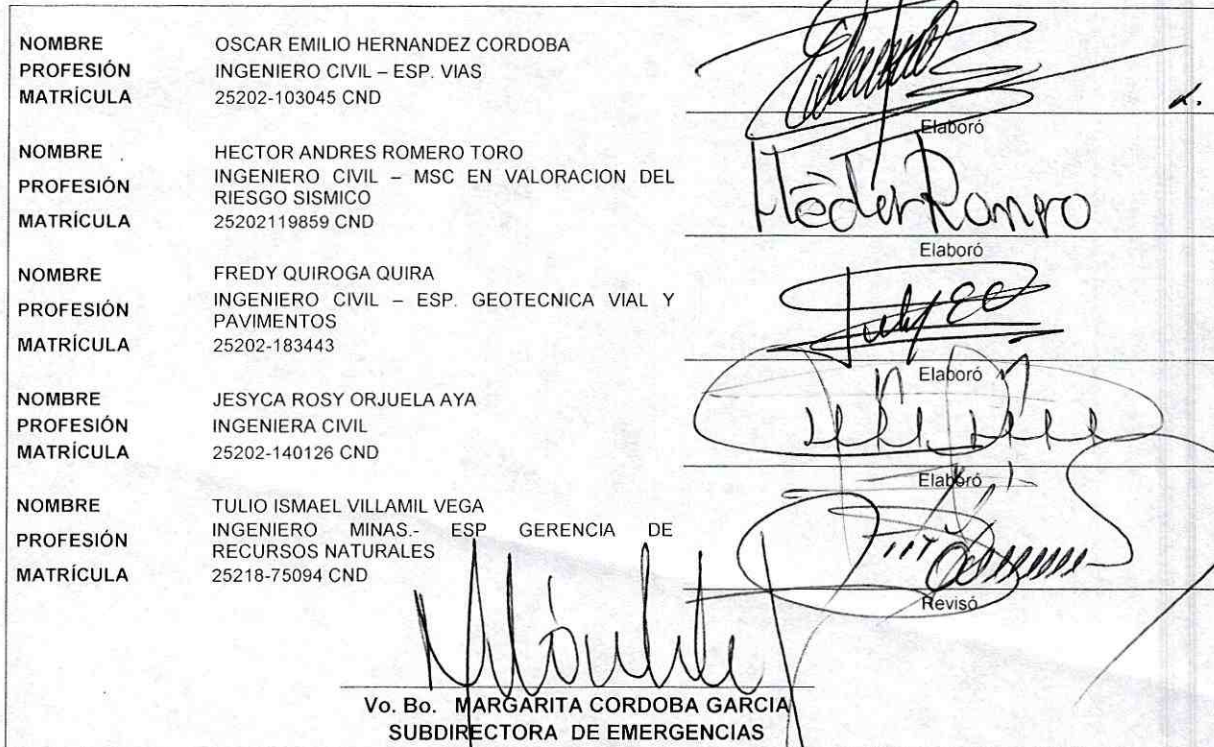 NOMBRE OSCAR EMILIO HERNANDEZ CORDOBA
PROFESIÓN INGENIERO CIVIL – ESP. VIAS
MATRÍCULA 25202-103045 CND
Elaboró
NOMBRE HECTOR ANDRES ROMERO TORO
PROFESIÓN INGENIERO CIVIL – MSC EN VALORACION DEL
RIESGO SISMICO
MATRÍCULA 25202119859 CND
Héctor Romero
Elaboró
NOMBRE FREDY QUIROGA QUIRA
PROFESIÓN INGENIERO CIVIL – ESP. GEOTECNICA VIAL Y
PAVIMENTOS
MATRÍCULA 25202-183443
Elaboró
NOMBRE JESYCA ROSY ORJUELA AYA
PROFESIÓN INGENIERA CIVIL
MATRÍCULA 25202-140126 CND
Elaboró
NOMBRE TULIO ISMAEL VILLAMIL VEGA
PROFESIÓN INGENIERO MINAS.- ESP GERENCIA DE
RECURSOS NATURALES
MATRÍCULA 25218-75094 CND
Revisó
Vo. Bo. MARGARITA CORDOBA GARCIA
SUBDIRECTORA DE EMERGENCIAS